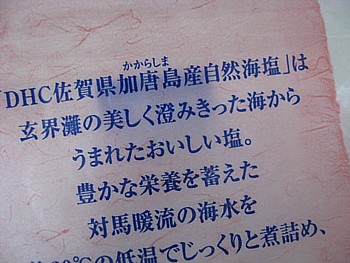 かからしま
「DHC佐賀県加唐島産自然海塩」は
玄界灘の美しく澄みきった海から
うまれたおいしい塩。
豊かな栄養を蓄えた
対馬暖流の海水を
0℃の低温でじっくりと煮詰め、